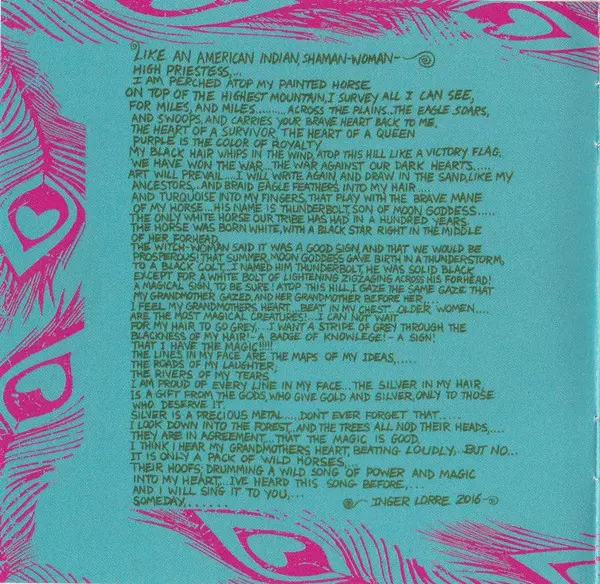 LIKE AN AMERICAN INDIAN, SHAMAN-WOMAN-
HIGH PRIESTESS,...
I AM PERCHED ATOP MY PAINTED HORSE
ON TOP OF THE HIGHEST MOUNTAIN, I SURVEY ALL I CAN SEE,
FOR MILES, AND MILES.......... ACROSS THE PLAINS..THE EAGLE SOARS,
AND SWOOPS, AND CARRIES YOUR BRAVE HEART BACK TO ME.
THE HEART OF A SURVIVOR, THE HEART OF A QUEEN
PURPLE IS THE COLOR OF ROYALTY
MY BLACK HAIR WHIPS IN THE WIND, ATOP THIS HILL LIKE A VICTORY FLAG.
WE HAVE WON THE WAR...THE WAR AGAINST OUR DARK HEARTS.....
ART WILL PREVAIL.....I WILL WRITE AGAIN, AND DRAW IN THE SAND, LIKE MY
ANCESTORS,..AND BRAID EAGLE FEATHERS INTO MY HAIR....
AND TURQUOISE INTO MY FINGERS, THAT PLAY WITH THE BRAVE MANE
OF MY HORSE...HIS NAME IS THUNDERBOLT, SON OF MOON GODDESS.....
THE ONLY WHITE HORSE OUR TRIBE HAS HAD IN A HUNDRED YEARS.
THE HORSE WAS BORN WHITE, WITH A BLACK STAR RIGHT IN THE MIDDLE
OF HER FORHEAD.
THE WITCH-WOMAN SAID IT WAS A GOOD SIGN, AND THAT WE WOULD BE
PROSPEROUS! THAT SUMMER, MOON GODDESS GAVE BIRTH IN A THUNDERSTORM,
TO A BLACK COLT,...I NAMED HIM THUNDERBOLT, HE WAS SOLID BLACK
EXCEPT FOR A WHITE BOLT OF LIGHTENING ZIGZAGING ACROSS HIS FORHEAD!
A MAGICAL SIGN, TO BE SURE! ATOP THIS HILL, I GAZE THE SAME GAZE THAT
MY GRANDMOTHER GAZED, AND HER GRANDMOTHER BEFORE HER,...
I FEEL MY GRANMOTHERS HEART...BEAT IN MY CHEST. OLDER WOMEN....
ARE THE MOST MAGICAL CREATURES!...I CAN NOT WAIT
FOR MY HAIR TO GO GREY,...I WANT A STRIPE OF GREY THROUGH THE
BLACKNESS OF MY HAIR!-A BADGE OF KNOWLEGE!-A SIGN!
THAT I HAVE THE MAGIC!!!!!
THE LINES IN MY FACE ARE THE MAPS OF MY IDEAS,.....
THE ROADS OF MY LAUGHTER,
THE RIVERS OF MY TEARS
I AM PROUD OF EVERY LINE IN MY FACE...THE SILVER IN MY HAIR,
IS A GIFT FROM THE GODS, WHO GIVE GOLD AND SILVER, ONLY TO THOSE
WHO DESERVE IT.
SILVER IS A PRECIOUS METAL.....DONT EVER FORGET THAT.....
I LOOK DOWN INTO THE FOREST, AND THE TREES ALL NOD THEIR HEADS,....
THEY ARE IN AGREEMENT...THAT THE MAGIC IS GOOD.
I THINK I HEAR MY GRANDMOTHERS HEART, BEATING LOUDLY,..BUT NO...
IT IS ONLY A PACK OF WILD HORSES,....
THEIR HOOFS; DRUMMING A WILD SONG OF POWER AND MAGIC
INTO MY HEART,..IVE HEARD THIS SONG BEFORE,...
AND I WILL SING IT TO YOU,...
SOMEDAY,.......
INGER LORRE 2016